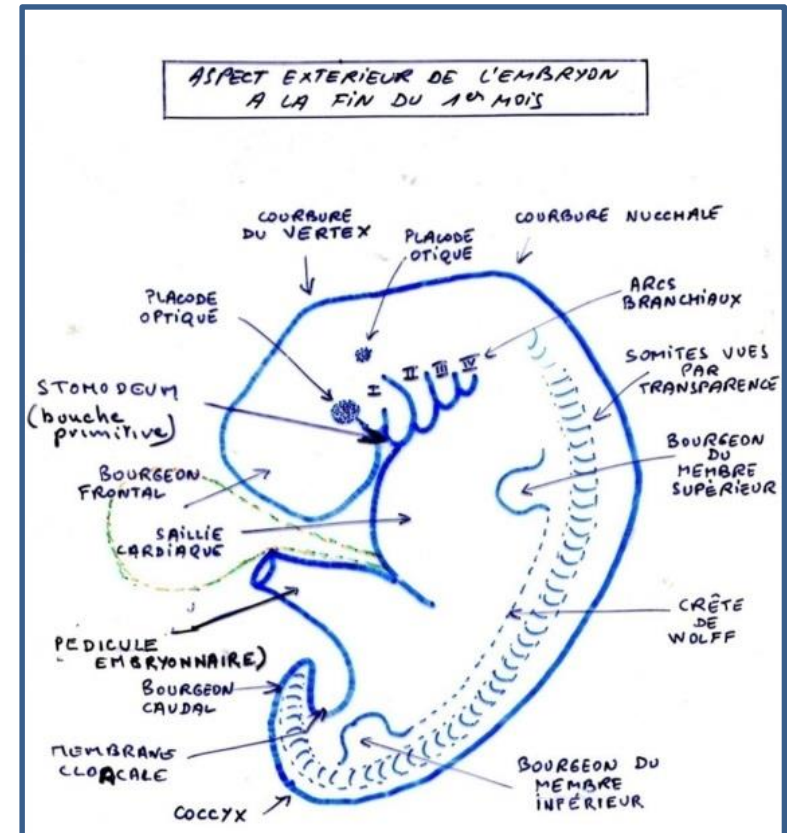 ASPECT EXTERIEUR DE L'EMBRYON
A LA FIN DU 1er MOIS
COURBURE
DU VERTEX
PLACODE
OTIQUE
COURBURE NUCCHALE
PLACODE
OPTIQUE
ARCS
BRANCHIAUX
I II III IV
SOMITES VUES
PAR
TRANSPARENCE
STOMODEUM
(bouche
primitive)
BOURGEON
DU
MEMBRE
SUPÈRIEUR
BOURGEON
FRONTAL
SAILLIE
CARDIAQUE
CRÊTE
DE
WOLFF
PEDICULE
EMBRYONNAIRE)
BOURGEON
CAUDAL
MEMBRANE
CLOACALE
COCCYX
BOURGEON DU
MEMBRE
INFÉRIEUR